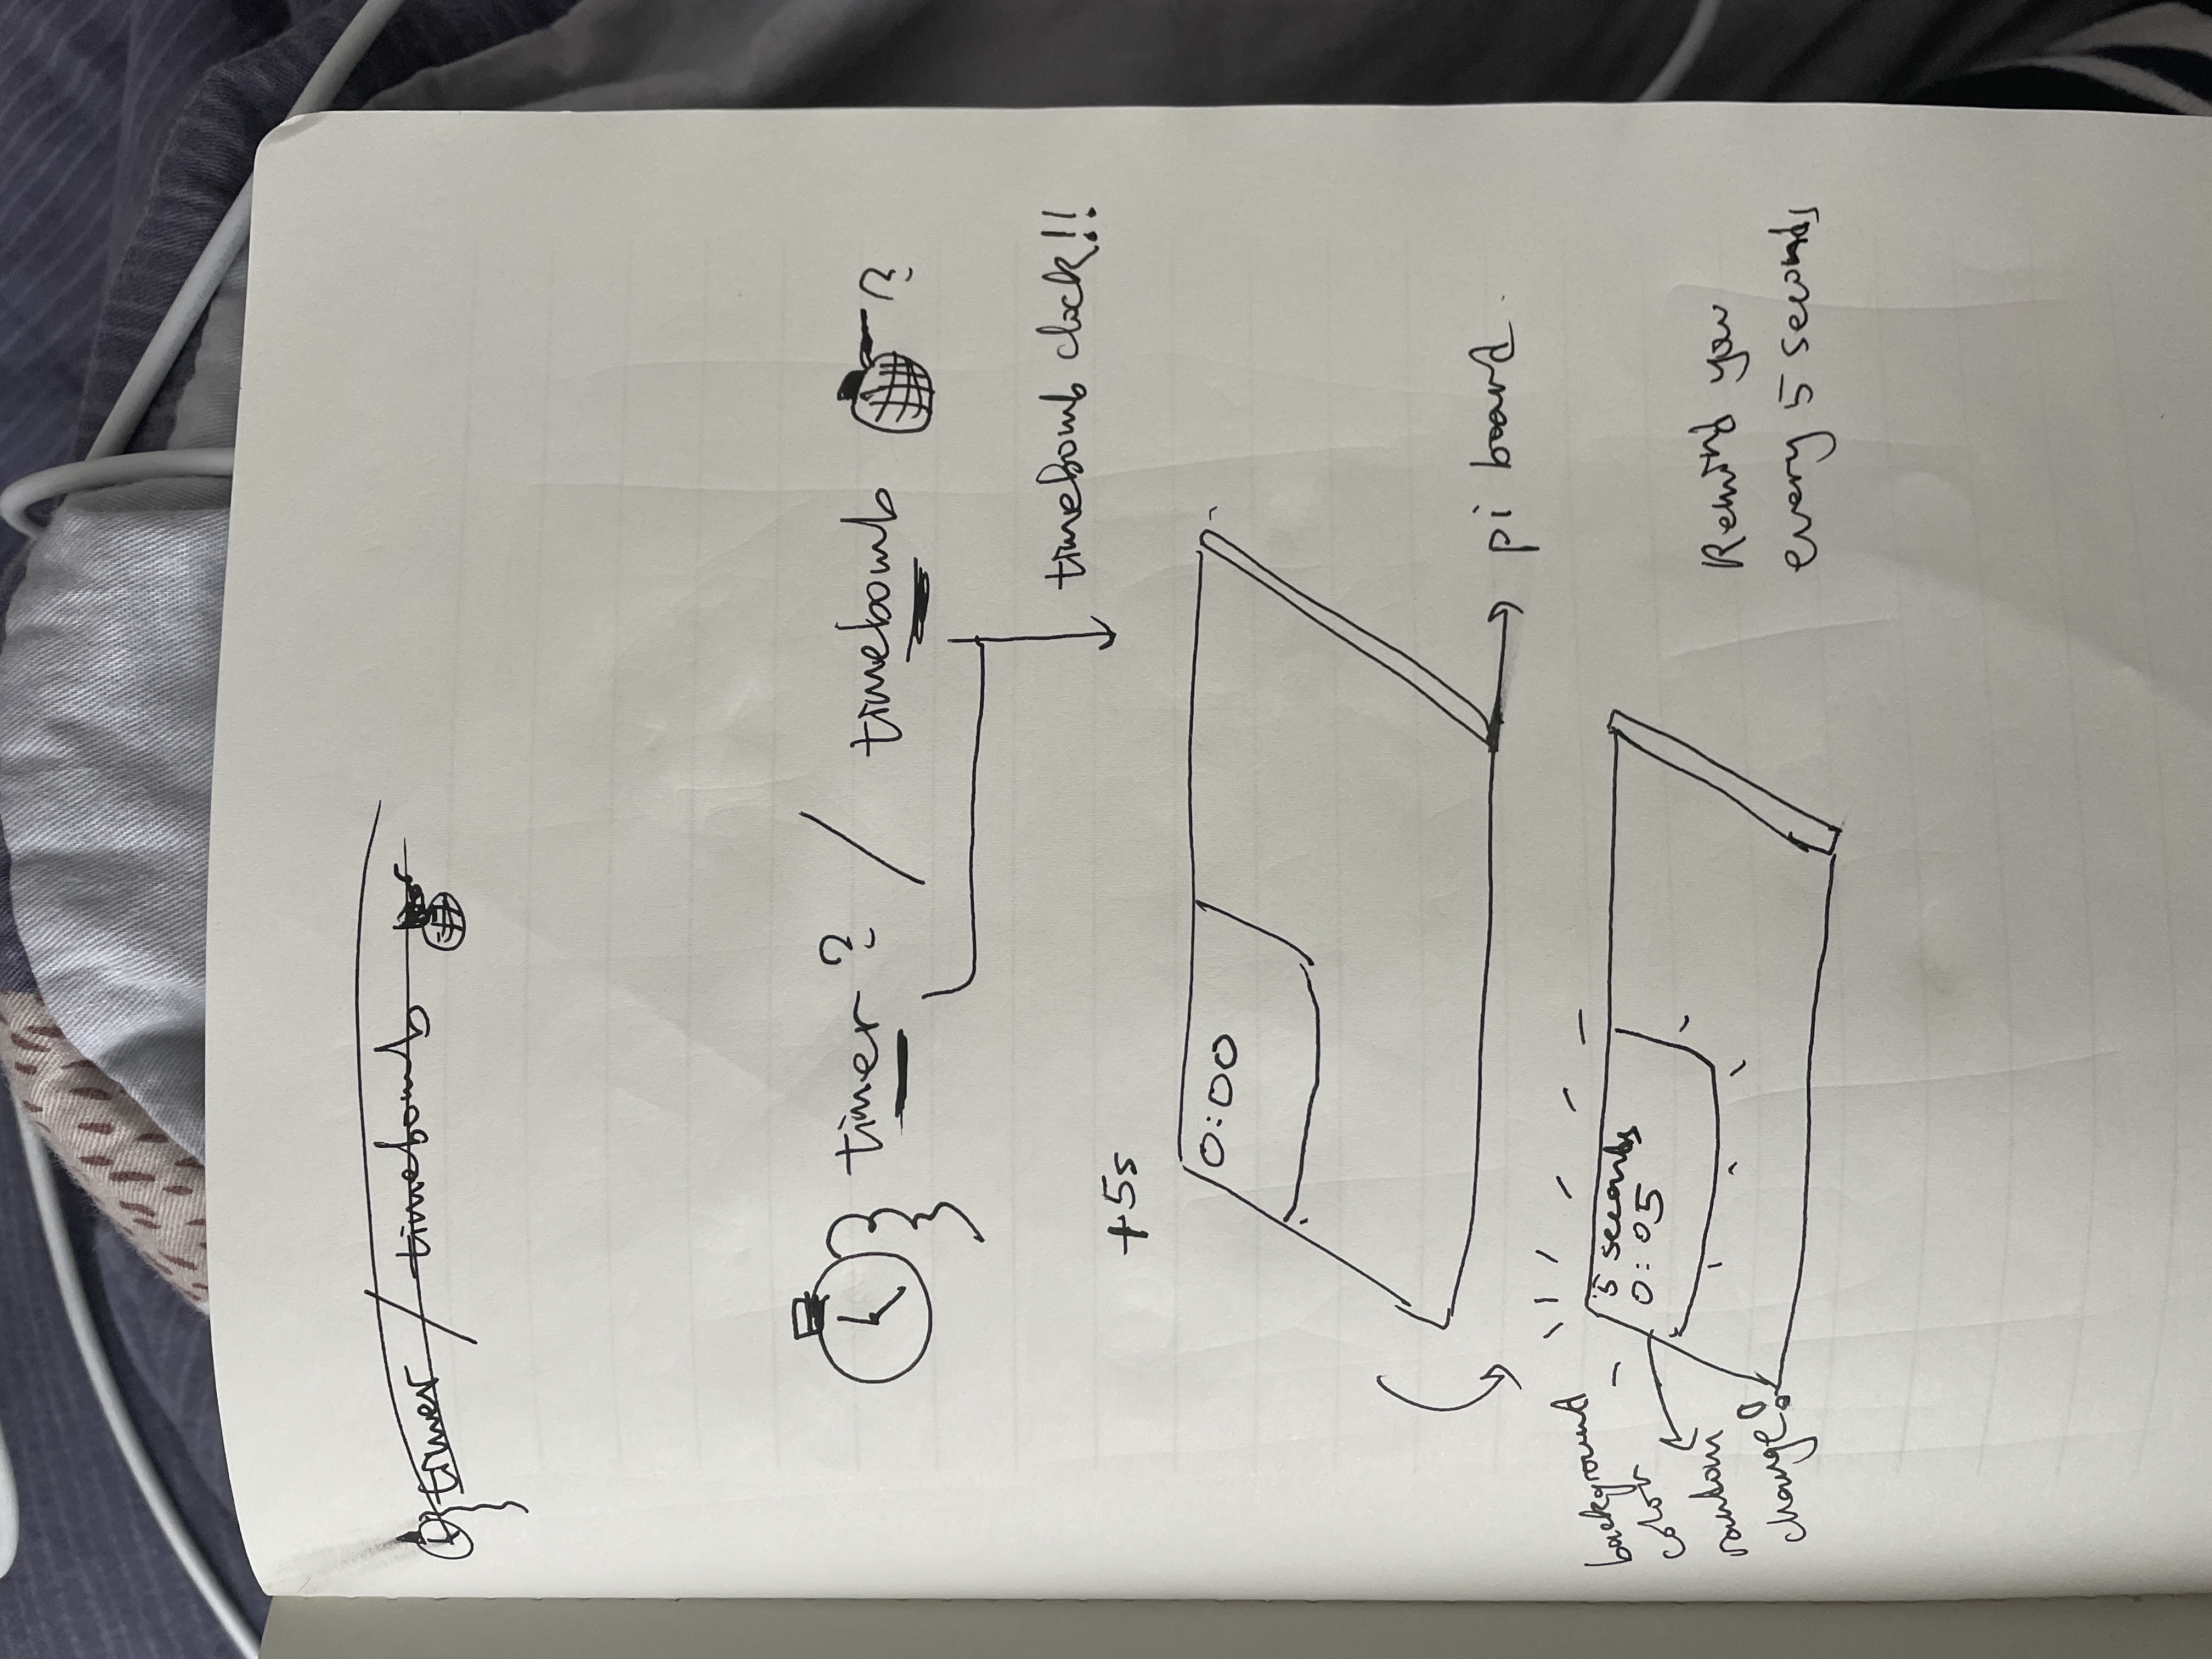 timer / timebomb
timer ? / timebomb ?
timebomb clock!!
+5s
0:00
pi board.
background
color
random
change!
5 seconds
0:05
Remind you
every 5 seconds